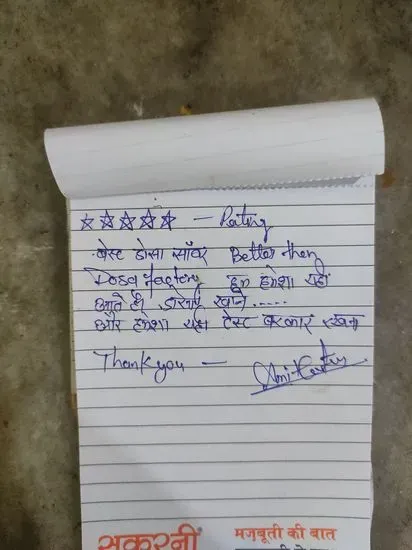 ☆☆☆☆☆ — Rating
बेस्ट डोसा सॉवर Better then
Dosa factory हम हमेशा यहाँ
आते है। डोसाई खाने .....
और हमेशा यह टेस्ट बरकार रखना
Thank you —
सकरनी
मज़बूती की बात